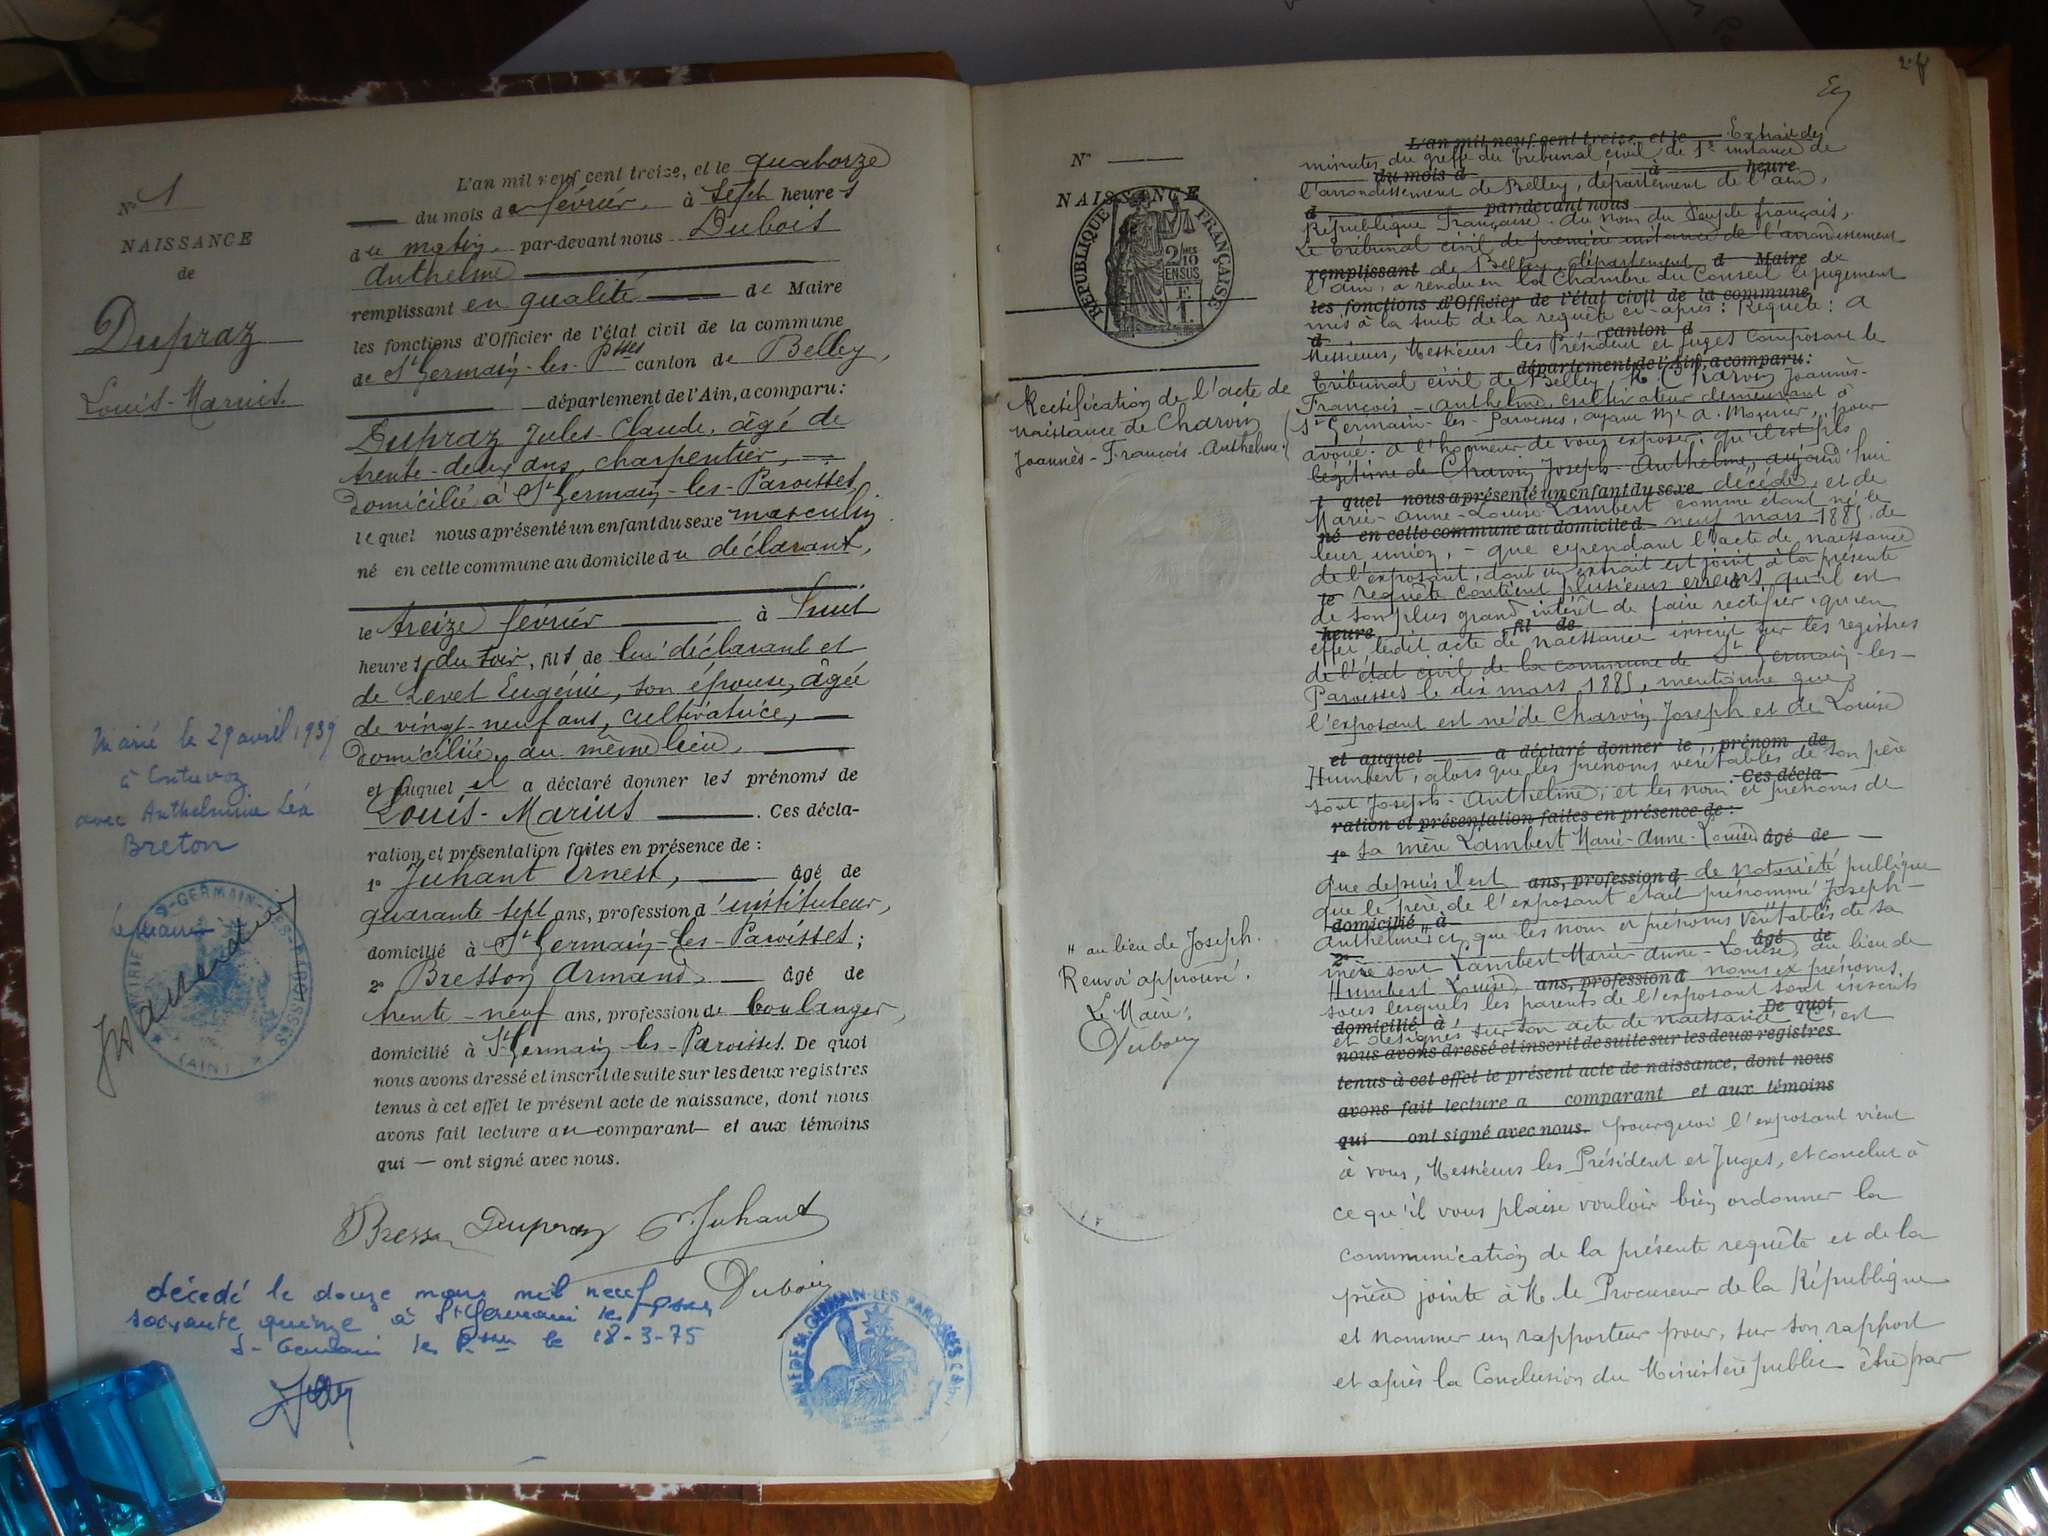 N° 1
NAISSANCE
de
Dupraz
Louis-Marius.
L'an mil neuf cent treize, et le quatorze
du mois de février, à sept heures
du matin, par-devant nous Dubois
Anthelme
remplissant en qualité de Maire
les fonctions d'Officier de l'état civil de la commune
de St Germain-les-Psses canton de Belley,
département de l'Ain, a comparu :
Dupraz Jules-Claude, âgé de
trente-deux ans, charpentier,
domicilié à St Germain-les-Paroisses,
lequel nous a présenté un enfant du sexe masculin
né en cette commune au domicile du déclarant,
le treize février à huit
heures du soir, fils de lui déclarant et
de Levet Eugénie, son épouse, âgée
de vingt-neuf ans, cultivatrice,
domiciliée au même lieu,
et auquel il a déclaré donner les prénoms de
Louis-Marius. Ces décla-
ration et présentation faites en présence de :
1° Juhant Ernest, âgé de
quarante sept ans, profession d'instituteur,
domicilié à St Germain-les-Paroisses ;
2° Bresson Armand, âgé de
trente-neuf ans, profession de boulanger,
domicilié à St Germain-les-Paroisses. De quoi
nous avons dressé et inscrit de suite sur les deux registres
tenus à cet effet le présent acte de naissance, dont nous
avons fait lecture au comparant et aux témoins
qui — ont signé avec nous.
Bresson Dupraz Juhant
Dubois
Marié le 29 avril 1939
à
avec Anthelmine Léa
Breton
Le Maire
MAIRIE ST-GERMAIN-LES-PAROISSES (AIN)
décédé le douze mars mil neuf
soixante quinze à St Germain les Psses
St Germain les Psses le 18-3-75
ST GERMAIN-LES PAROISSES (AIN)
N°
NAISSANCE
RÉPUBLIQUE FRANÇAISE
2/10
EN SUS
Rectification de l'acte de
naissance de Charvin
Joannès-François-Anthelme.
" au lieu de Joseph.
Renvoi approuvé.
Le Maire,
Dubois
L'an mil neuf cent treize, et le Extrait des
minutes du greffe du Tribunal civil de 1re instance de
du mois d à heure
l'arrondissement de Belley, département de l'Ain,
d par-devant nous
République Française. Au nom du Peuple français,
Le Tribunal civil de première instance de l'arrondissement
remplissant de Belley, département d Maire de
l'Ain, a rendu en la Chambre du Conseil le jugement
les fonctions d'Officier de l'état civil de la commune
mis à la suite de la requête ci-après : Requête : A
d canton d
Messieurs, Messieurs les Président et Juges composant le
département de l'Ain, a comparu :
Tribunal civil de Belley, M. Charvin Joannès-
François-Anthelme, cultivateur demeurant à
St Germain-les-Paroisses, ayant Me A. Meunier, pour
avoué. A l'honneur de vous exposer, qu'il est fils
légitime de Charvin Joseph-Anthelme, aujourd'hui
lequel nous a présenté un enfant du sexe décédé, et de
Marie-Anne-Louise Lambert comme étant né le
né en cette commune au domicile d neuf mars 1885 de
leur union, - que cependant l'acte de naissance
de l'exposant, dont un extrait est joint à la présente
le requête contient plusieurs erreurs à qu'il est
de son plus grand intérêt de faire rectifier ; qu'en
heure fil de
effet ledit acte de naissance inscrit sur les registres
de l'état civil de la commune de St Germain-les-
Paroisses le dix mars 1885, mentionne que
l'exposant est né de Charvin Joseph et de Louise
et auquel a déclaré donner le prénom de
Humbert, alors que les prénoms véritables de son père
Ces décla-
sont Joseph-Anthelme, et les nom et prénoms de
ration et présentation faites en présence de :
1° sa mère Lambert Marie-Anne-Louise âgé de
que depuis il est ans, profession d de notoriété publique
que le père de l'exposant était prénommé Joseph-
domicilié à
Anthelme " et que les nom et prénoms véritables de sa
2° âgé de
mère sont Lambert Marie-Anne-Louise, au lieu de
Humbert Louise, ans, profession d noms et prénoms
sous lesquels les parents de l'exposant sont inscrits
domicilié à De quoi
et désignés sur son acte de naissance. C'est
nous avons dressé et inscrit de suite sur les deux registres
tenus à cet effet le présent acte de naissance, dont nous
avons fait lecture a comparant et aux témoins
qui ont signé avec nous. pourquoi l'exposant vient
à vous, Messieurs les Président et Juges, et conclut à
ce qu'il vous plaise vouloir bien ordonner la
communication de la présente requête et de la
pièce jointe à M. le Procureur de la République
et nommer un rapporteur pour, sur son rapport
et après la Conclusion du Ministère public être par